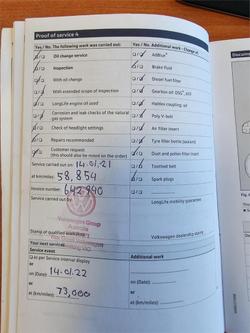 Proof of service 4
Yes / No The following work was carried out:
Oil change service
Inspection
With oil change
With extended scope of inspection
LongLife engine oil used
Corrosion and leak checks of the natural gas system
Check of headlight settings
Repairs recommended
Customer request
(this should also be noted on the order)
Service carried out on: 14.01.21
at km/miles: 58,854
Invoice number: 642840
Service carried out by:
Volkswagen Group
Stamp of qualified workshop
Your next service:
Service event
as per Service interval display
or
on (Date): 14.01.22
or
at (km/miles): 73,000
Yes / No Additional work - Change of:
AdBlue®
Brake fluid
Diesel fuel filter
Gearbox oil: DSG®,
Haldex coupling: oil
Poly V-belt
Air filter insert
Tyre filler bottle (sealant)
Dust and pollen filter insert
Toothed belt
Spark plugs
LongLife mobility guarantee
Volkswagen dealership stamp
Additional work
on (Date):
or
at (km/miles):